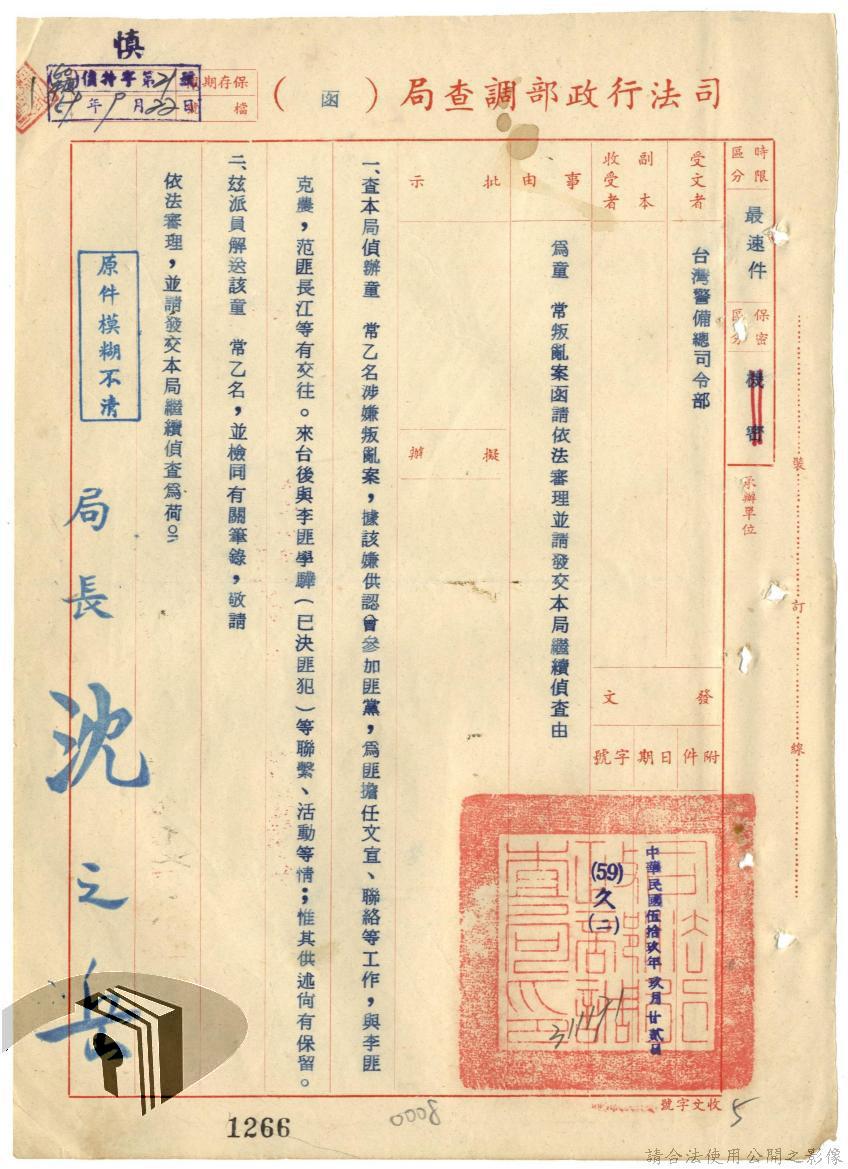 司法行政部調查局（函）
慎
保存期限
檔號
偵特字第21號
59年9月22日
時限區分
最速件
保密區分
機密
承辦單位
受文者
台灣警備總司令部
副本收受者
發文
附件
日期
字號
中華民國伍拾玖年玖月廿貳日
(59)久(二)
311191
事由
為童　常叛亂案函請依法審理並請發交本局繼續偵查由
批示
擬辦
一、查本局偵辦童　常乙名涉嫌叛亂案，據該嫌供認曾參加匪黨，為匪擔任文宣、聯絡等工作，與李匪
克農，范匪長江等有交往。來台後與李匪學驊（已決匪犯）等聯繫、活動等情；惟其供述尚有保留。
二、茲派員解送該童　常乙名，並檢同有關筆錄，敬請
依法審理，並請發交本局繼續偵查為荷。
原件模糊不清
局長沈之岳
裝
訂
線
收文字號
5
8000
1266
請合法使用公開之影像